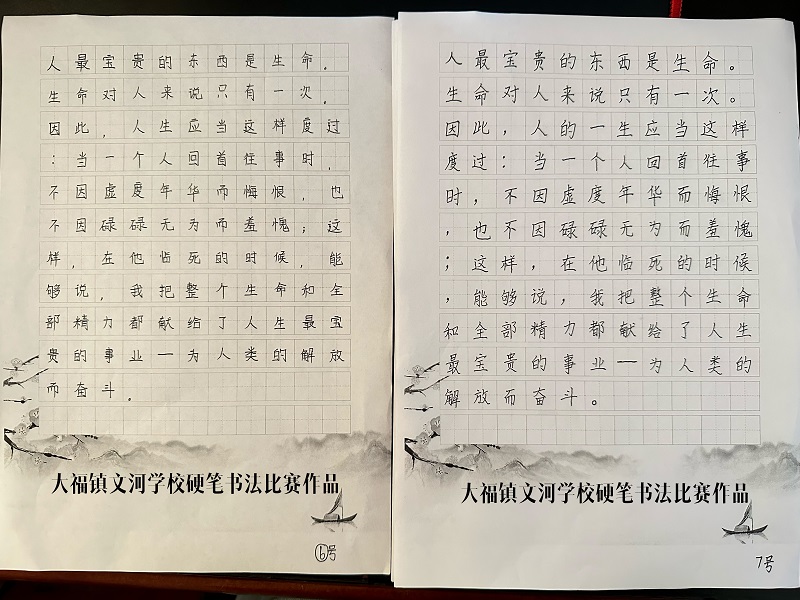 人最宝贵的东西是生命.
生命对人来说只有一次.
因此,人生应当这样度过
:当一个人回首往事时,
不因虚度年华而悔恨,也
不因碌碌无为而羞愧;这
样,在他临死的时候,能
够说,我把整个生命和全
部精力都献给了人生最宝
贵的事业—为人类的解放
而奋斗.
大福镇文河学校硬笔书法比赛作品
⑥号
人最宝贵的东西是生命。
生命对人来说只有一次。
因此,人的一生应当这样
度过:当一个人回首往事
时,不因虚度年华而悔恨
,也不因碌碌无为而羞愧
;这样,在他临死的时候
,能够说,我把整个生命
和全部精力都献给了人生
最宝贵的事业—为人类的
解放而奋斗。
大福镇文河学校硬笔书法比赛作品
7号